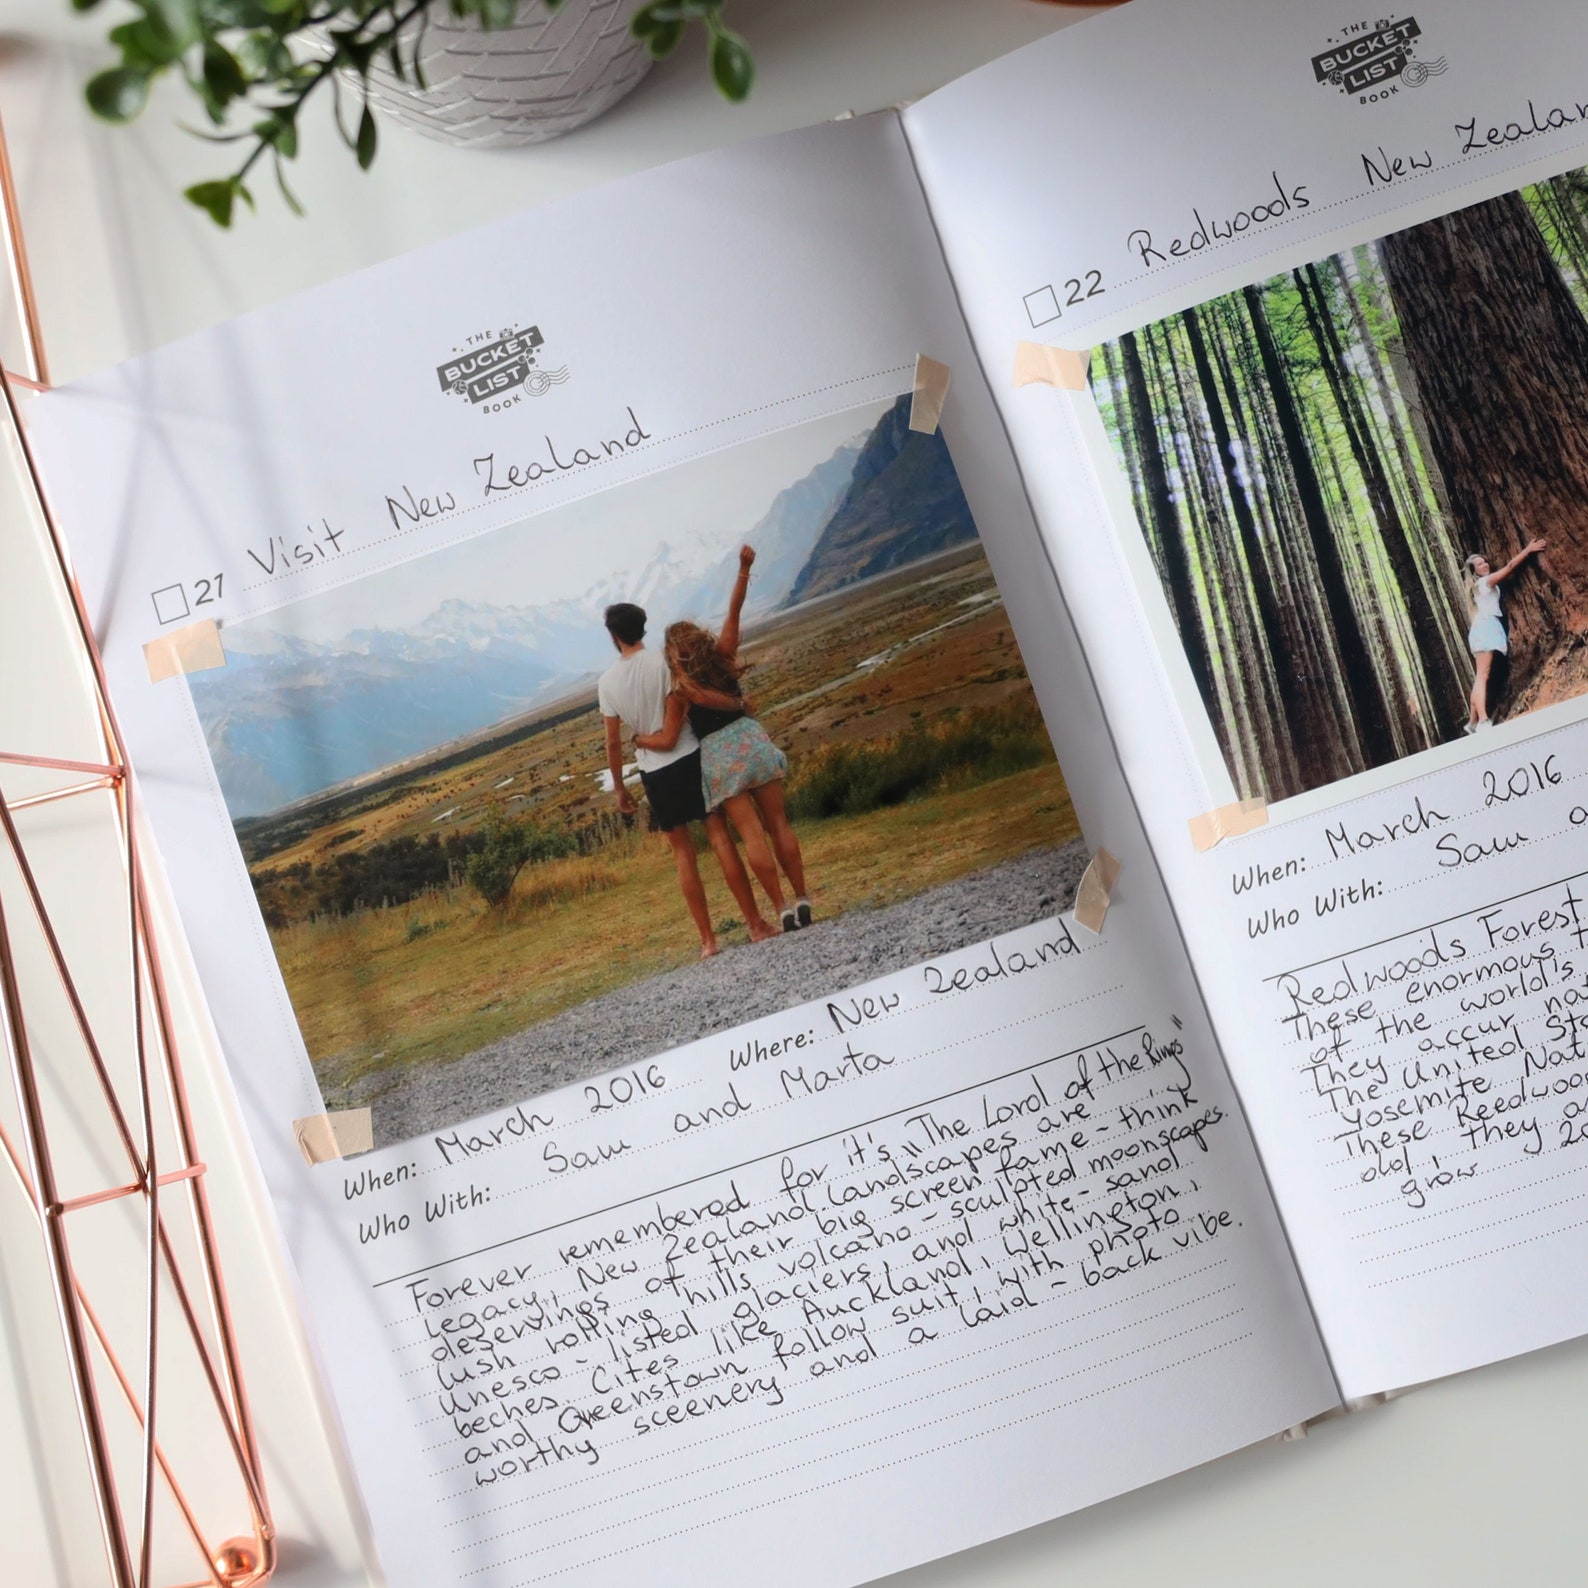 THE
BUCKET
LIST
BOOK
21 Visit New Zealand
When: March 2016 Where: New Zealand
Who With: Sam and Marta
Forever remembered for it's „The Lord of the Rings"
Legacy, New Zealand landscapes are
deservings of their big screen fame - think
lush rolling hills volcano - sculpted moonscapes.
Unesco - listed glaciers, and white - sand
beches. Cites like Auckland, Wellington,
and Queenstown follow suit, with photo
worthy sceenery and a laid - back vibe.
THE
BUCKET
LIST
BOOK
22 Redwoods New Zealan
When: March 2016
Who With: Sam a
Redwoods Forest
These enormous t
of the world is
They accur nat
The United Sta
Yosemite Nat
These Reedwoo
old, they a
grow 20